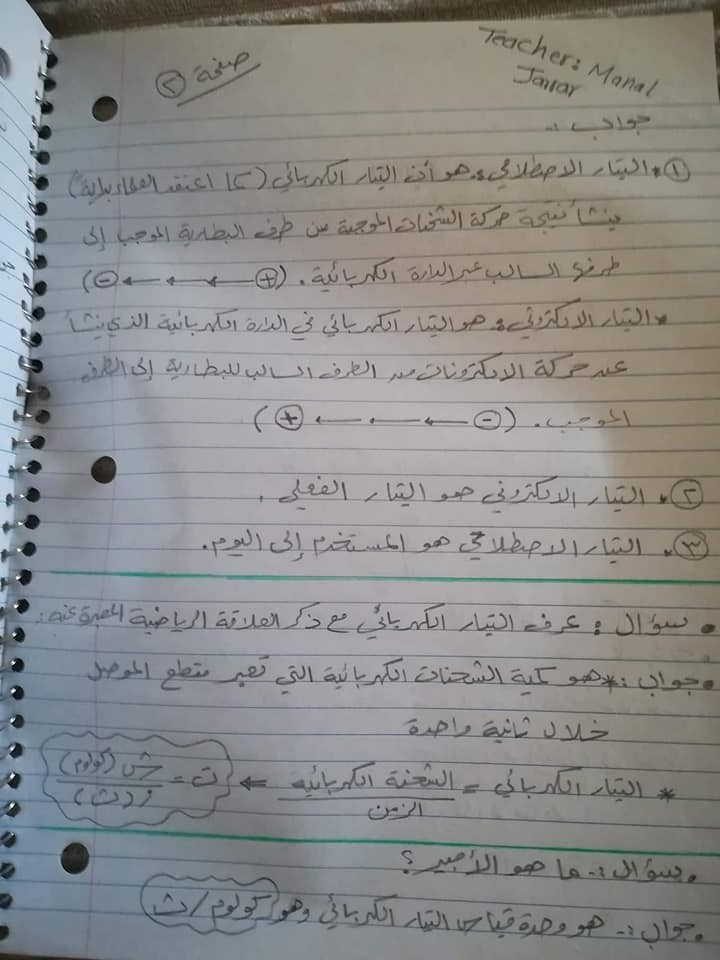 Teacher: Manal
Jarrar
صفحة (٢)
جواب :-
(١) * التيار الاصطلاحي : هو أن التيار الكهربائي (كما اعتقد العلماء بداية)
ينشأ نتيجة حركة الشحنات الموجبة من طرف البطارية الموجب إلى
طرفها السالب عبر الدارة الكهربائية. (⊕ ← ← ← ⊖)
* التيار الالكتروني : هو التيار الكهربائي في الدارة الكهربائية الذي ينشأ
عند حركة الالكترونات من الطرف السالب للبطارية إلى الطرف
الموجب. (⊖ ← ← ← ⊕)
(٢) * التيار الالكتروني هو التيار الفعلي .
(٣) * التيار الاصطلاحي هو المستخدم إلى اليوم.
• سؤال : عرف التيار الكهربائي مع ذكر العلاقة الرياضية المعبرة عنه :
• جواب : * هو كمية الشحنات الكهربائية التي تعبر مقطع الموصل
خلال ثانية واحدة
* التيار الكهربائي = الشحنة الكهربائية / الزمن ← ت = ش (كولوم) / ز (ث)
• سؤال :- ما هو الأمبير ؟
• جواب :- هو وحدة قياس التيار الكهربائي وهو كولوم / ث